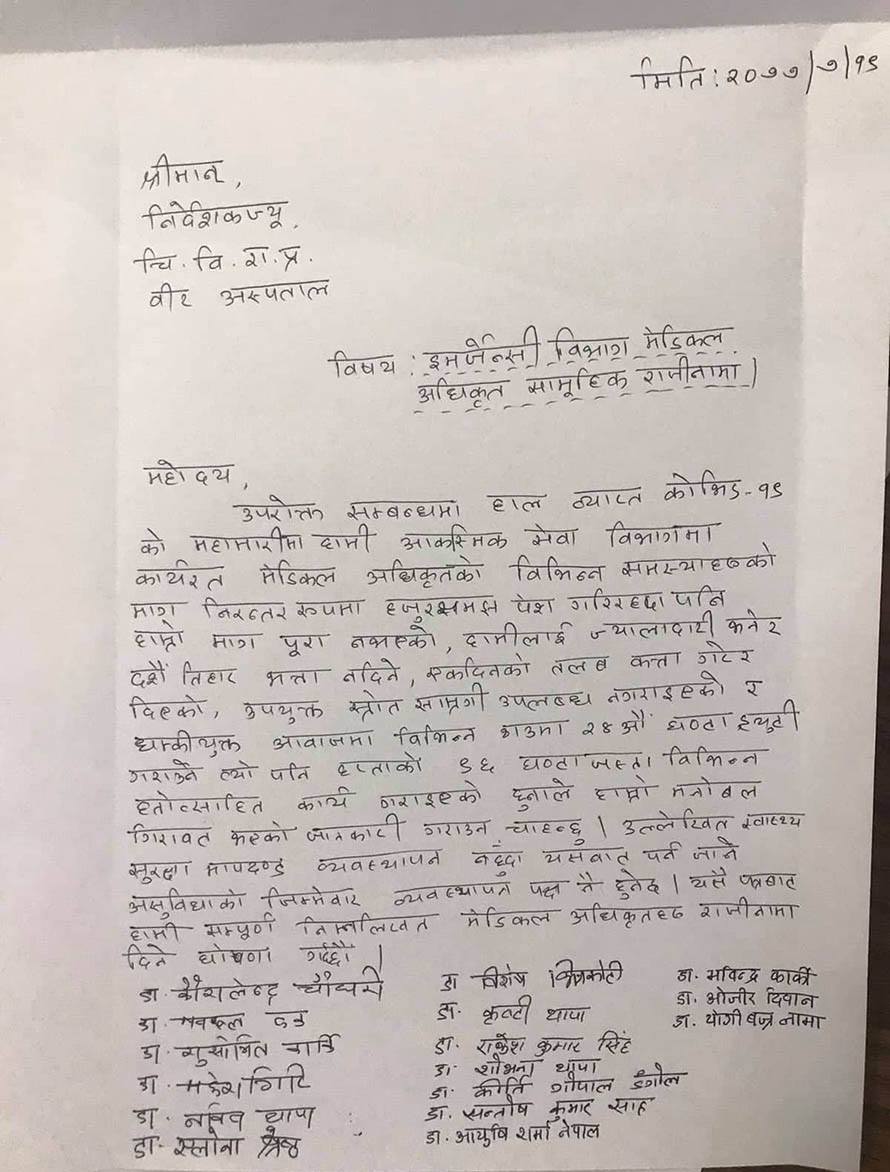 मिति: २०७७/७/१९
श्रीमान,
निर्देशकज्यू,
चि. वि. रा. प्र.
वीर अस्पताल
विषय: इमर्जेन्सी विभाग मेडिकल
अधिकृत सामूहिक राजीनामा।
महोदय,
उपरोक्त सम्बन्धमा हाल व्याप्त कोभिड-१९
को महामारीमा हामी आकस्मिक सेवा विभागमा
कार्यरत मेडिकल अधिकृतको विभिन्न समस्याहरुको
माग निरन्तर रुपमा हजुरसमक्ष पेश गरिरहदा पनि
हाम्रो माग पूरा नभएको, हामीलाई ज्यालादारी भनेर
दशैं तिहार भत्ता नदिने, एकदिनको तलब कत्ता गरेर
दिएको, उपयुक्त स्त्रोत साम्रगी उपलब्ध नगराइएको र
धम्कीयुक्त आवाजमा विभिन्न २४ औं घण्टा ड्युटी
गराउने त्यो पनि हप्ताको ९६ घण्टा जस्ता विभिन्न
हतोत्साहित कार्य गराइएको हुनाले हाम्रो मनोबल
गिरावट भएको जानकारी गराउन चाहन्छु। उल्लेखित स्वास्थ्य
सुरक्षा मापदण्ड व्यवस्थापन नहुँदा यसबाट पर्न जाने
असुविधाको जिम्मेवार व्यवस्थापन पक्ष नै हुनेछ। यसै पत्रबाट
हामी सम्पूर्ण निम्नलिखित मेडिकल अधिकृतहरु राजीनामा
दिने घोषणा गर्दछौं।
डा. कौशलेन्द्र चौधरी
डा.
डा. सुशोभित
डा. महेश गिरि
डा. नविन थापा
डा. स्लोना श्रेष्ठ
डा विशेष
डा. कृन्टी थापा
डा. राकेश कुमार सिंह
डा. शोभना थापा
डा. कीर्ति गोपाल डंगोल
डा. सन्तोष कुमार साह
डा. आयुषि शर्मा नेपाल
डा. भविन्द्र कार्की
डा. ओजीर दिवान
डा. योगी बज्र लामा